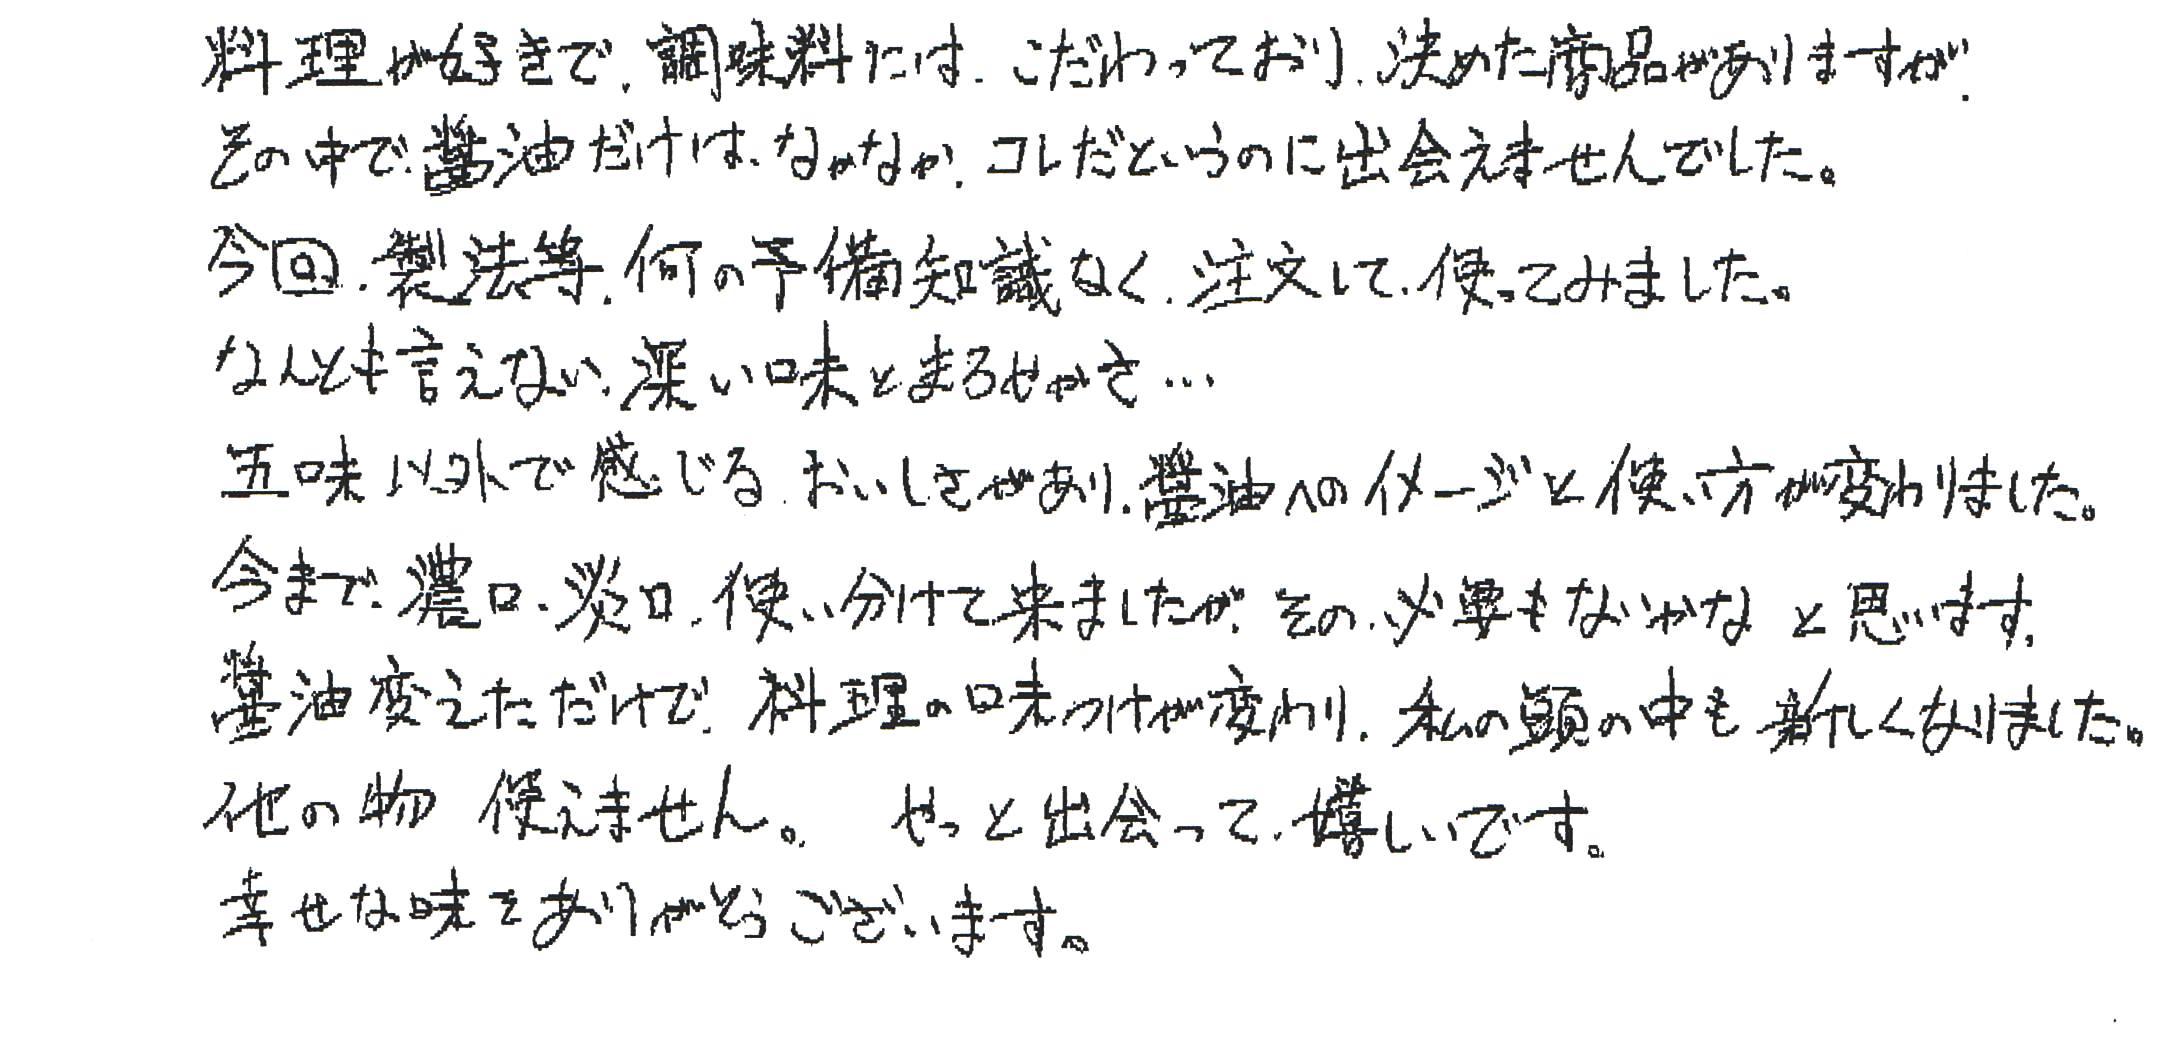 料理が好きで、調味料には、こだわっており、決めた商品がありますが、
その中で、醤油だけは、なかなか、コレだというのに出会えませんでした。
今回、製法等、何の予備知識なく、注文して、使ってみました。
なんとも言えない、深い味とまろやかさ…
五味以外で感じる、おいしさがあり、醤油へのイメージと使い方が変わりました。
今まで、濃口、淡口、使い分けて来ましたが、その、必要もないかなと思います。
醤油変えただけで、料理の味つけが変わり、私の頭の中も新しくなりました。
他の物 使えません。 やっと出会って、嬉しいです。
幸せな味をありがとうございます。